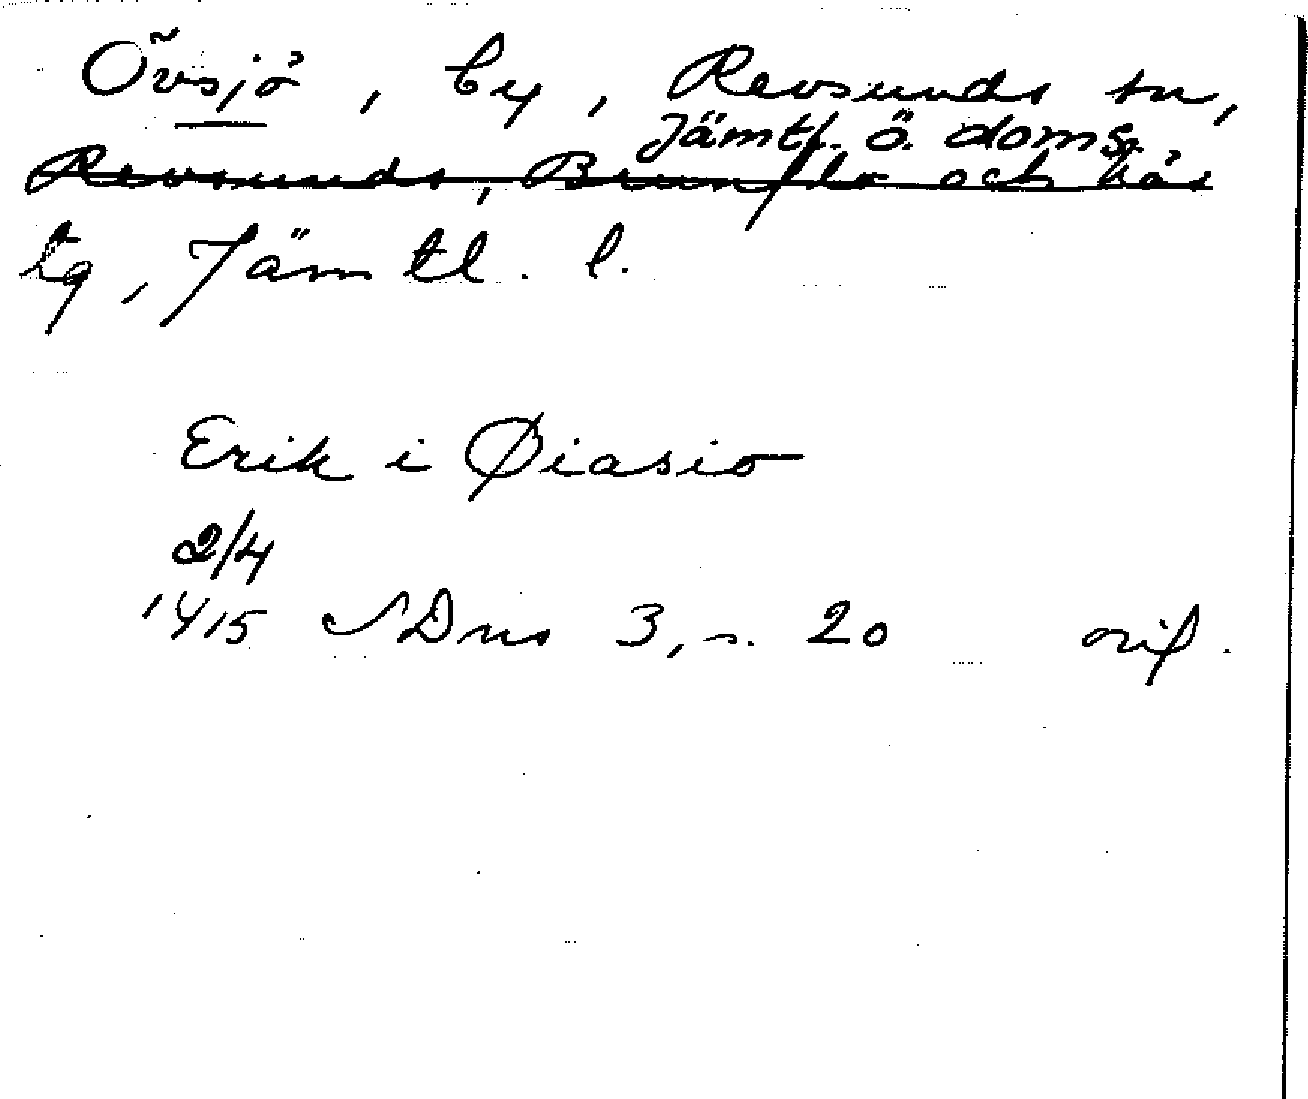 Övsjö, by, Revsunds sn,
Jämtl. ö. doms.
Revsunds, Brunflo och Näs
tg, Jämtl. l.
Erik i Øiasio
2/4
1415 NDns 3, s. 20 orig.